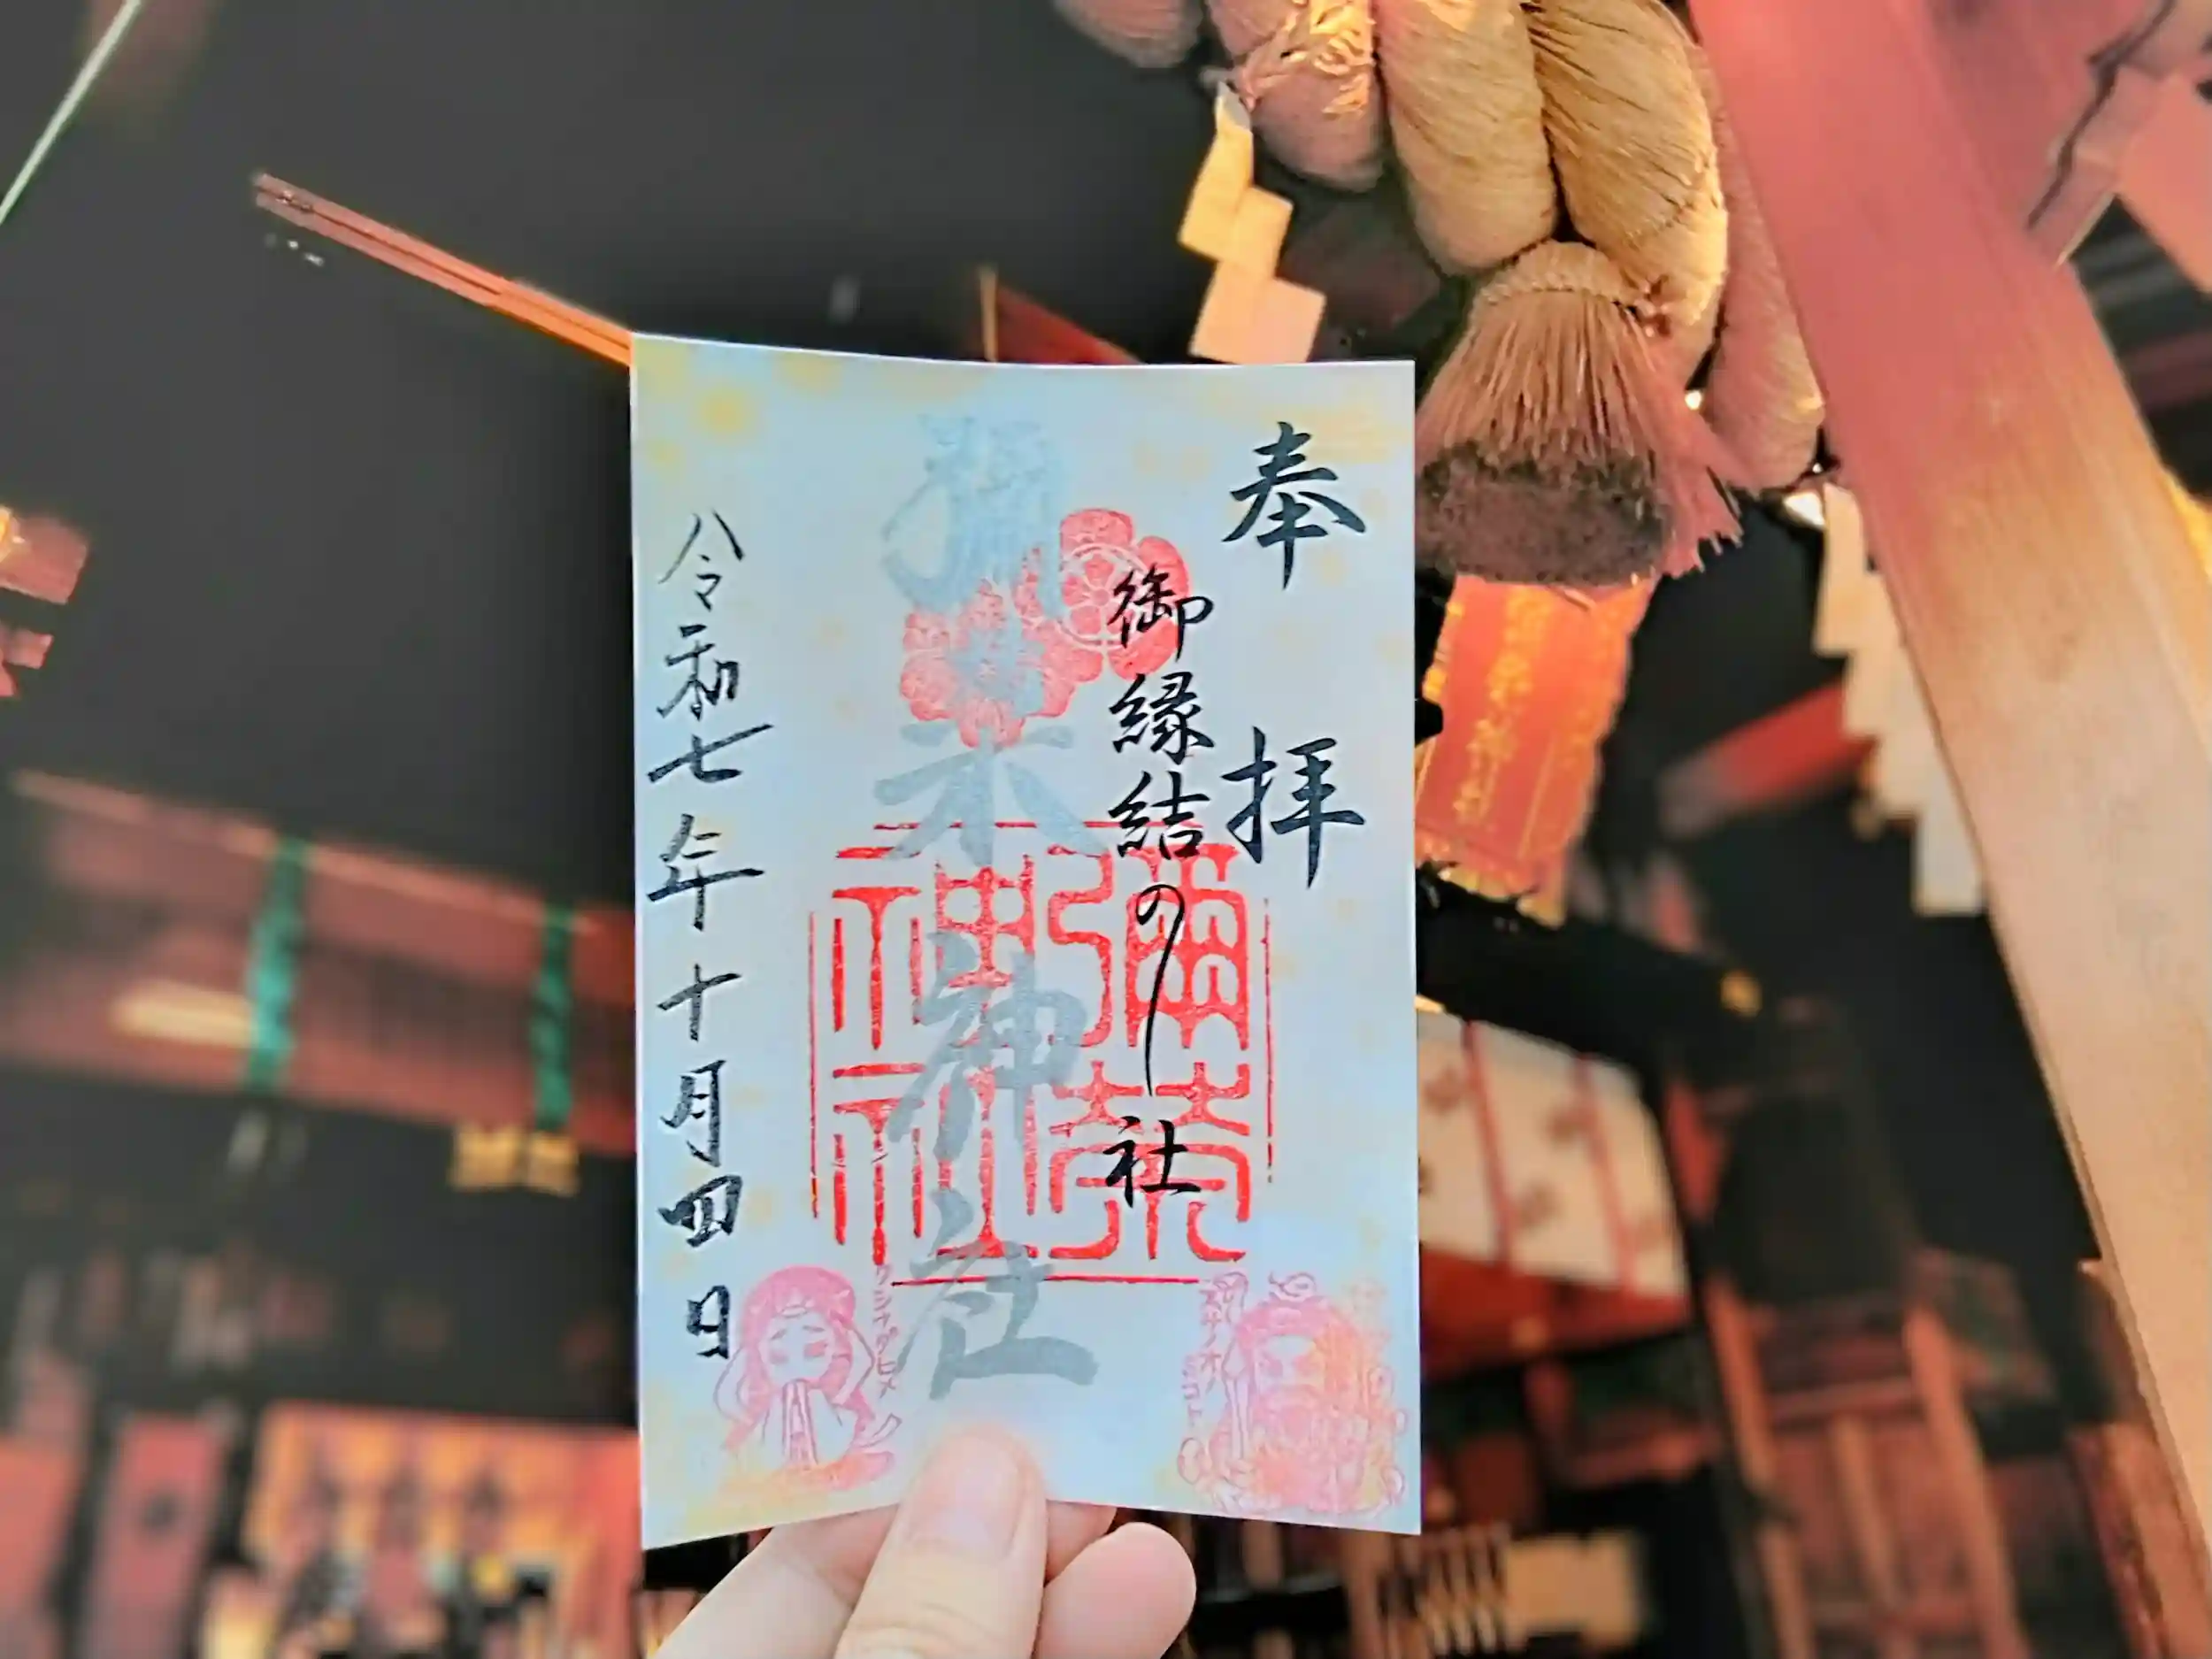 奉拝
御縁結の社
彌榮神社
彌榮神社
スサノオノミコト
クシナダヒメ
令和七年十月四日